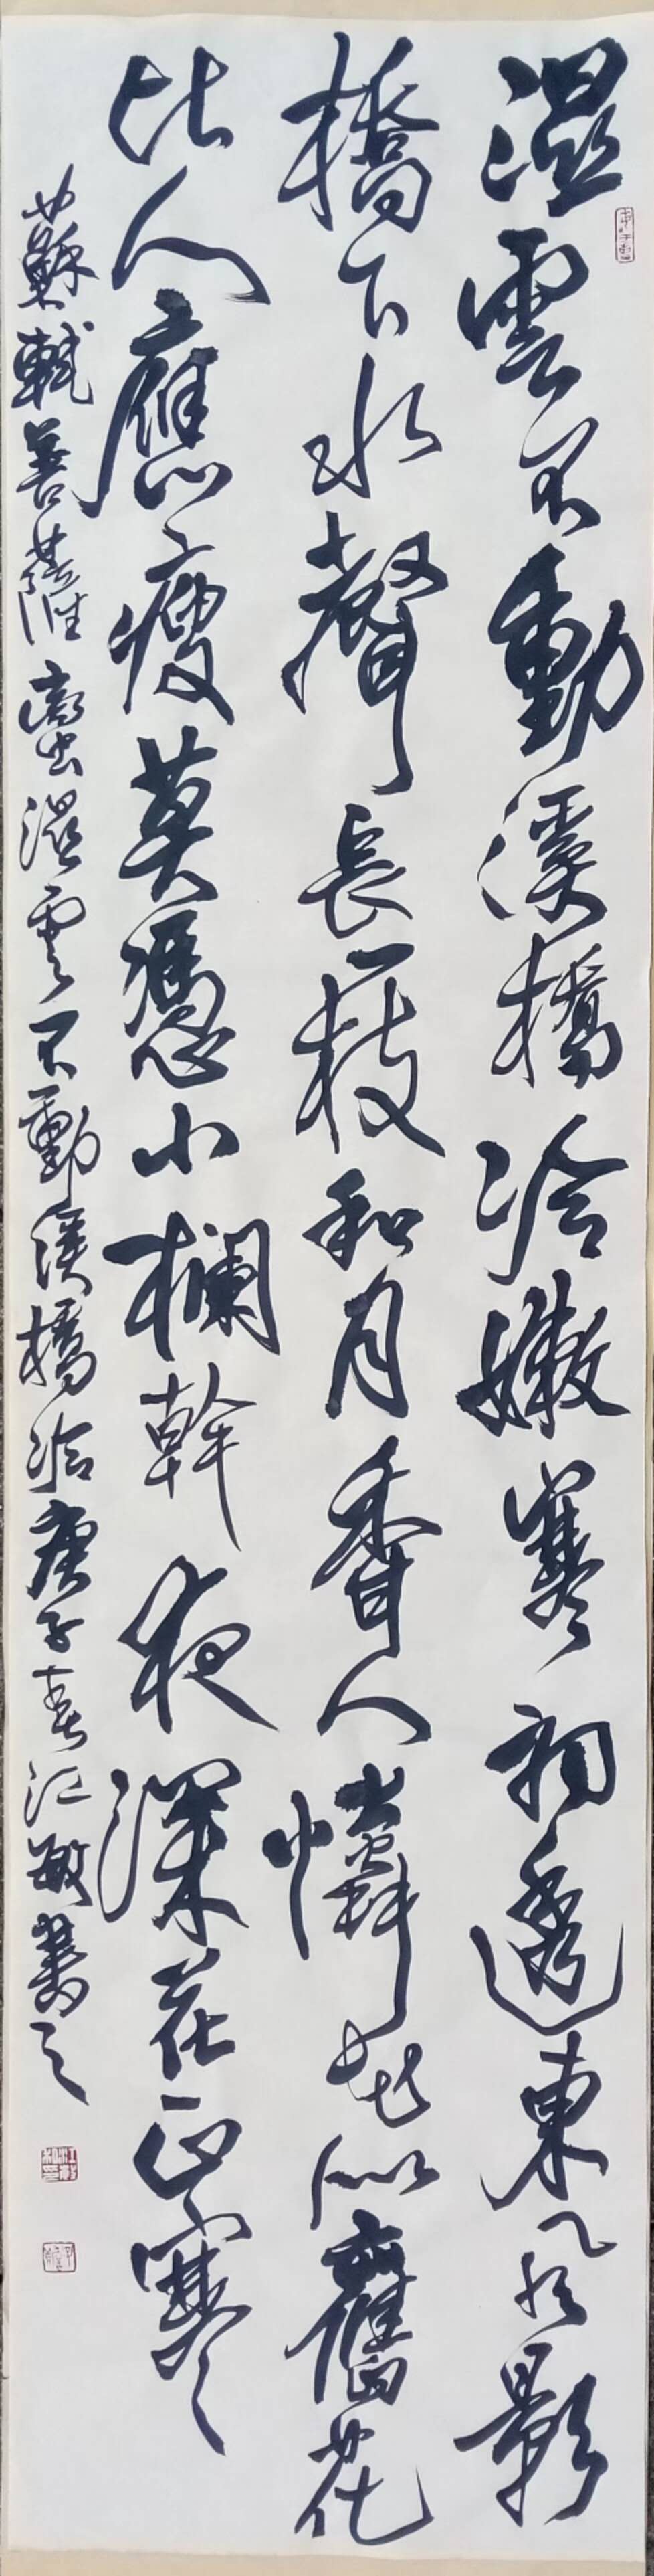 濕雲不動溪橋冷嫩寒初透東風影
橋下水聲長一枝和月香人憐花似舊花
比人應瘦莫憑小欄幹夜深花正寒
蘇軾菩薩蠻濕雲不動溪橋冷庚子春江敏書之